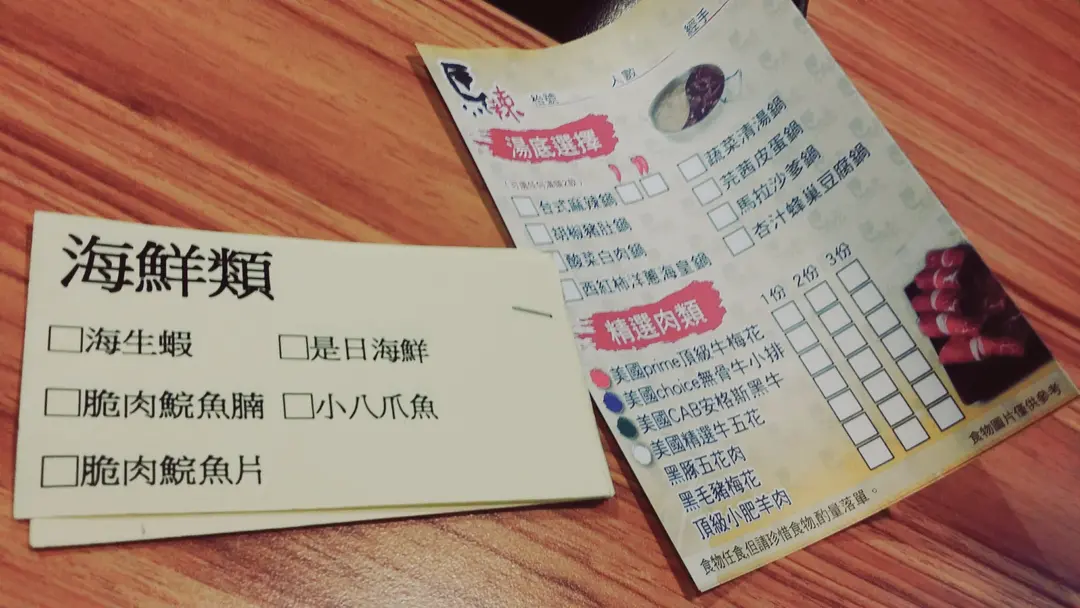 海鮮類
□海生蝦
□是日海鮮
□脆肉鯇魚腩
□小八爪魚
□脆肉鯇魚片
辣
枱號
人數
經手
湯底選擇
台式麻辣鍋
胡椒豬肚鍋
酸菜白肉鍋
西紅柿洋蔥海皇鍋
蔬菜清湯鍋
芫茜皮蛋鍋
馬拉沙爹鍋
杏汁蜂巢豆腐鍋
精選肉類
1份 2份 3份
美國prime頂級牛梅花
美國choice無骨牛小排
美國CAB安格斯黑牛
美國精選牛五花
黑豚五花肉
黑毛豬梅花
頂級小肥羊肉
食物圖片僅供參考
食物任食,但請珍惜食物,酌量落單。